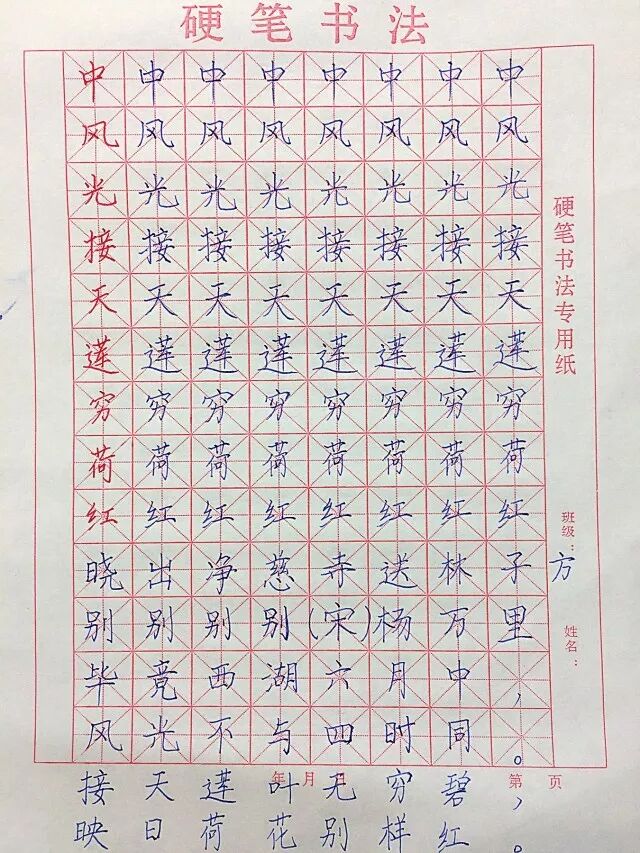 硬笔书法
中中中中中中中中
风风风风风风风风
光光光光光光光光
接接接接接接接接
天天天天天天天天
莲莲莲莲莲莲莲莲
穷穷穷穷穷穷穷穷
荷荷荷荷荷荷荷荷
红红红红红红红红
晓出净慈寺送林子方
别别别别(宋)杨万里
毕竟西湖六月中,
风光不与四时同。
接天莲叶无穷碧,
映日荷花别样红。
硬笔书法专用纸
班级:
姓名:
年 月 日
第 页